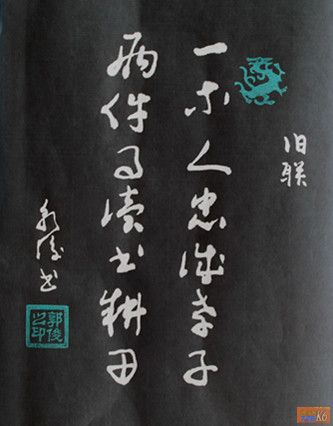 旧联
一等人忠诚孝子
两件事读书耕田
书
郭俊之印
K6